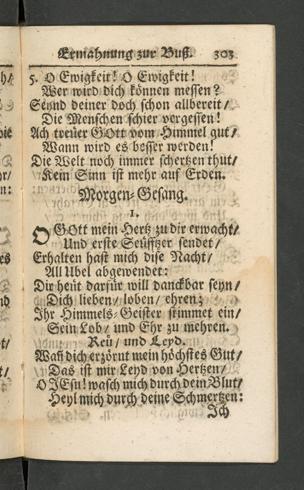 Ermahnung zur Buß. 303
5. O Ewigkeit! O Ewigkeit!
Wer wird dich können messen?
Seynd deiner doch schon allbereit/
Die Menschen schier vergessen!
Ach treuer GOtt vom Himmel gut/
Wann wird es besser werden!
Die Welt noch immer schertzen thut/
Kein Sinn ist mehr auf Erden.
Morgen-Gesang.
1.
O GOtt mein Hertz zu dir erwacht/
Und erste Seüfftzer sendet/
Erhalten hast mich dise Nacht/
All Ubel abgewendet:
Dir heüt darfür will danckbar seyn/
Dich lieben/ loben/ ehren;
Ihr Himmels-Geister stimmet ein/
Sein Lob/ und Ehr zu mehren.
Reü/ und Leyd.
Waß dich erzörnt mein höchstes Gut/
Das ist mir Leyd von Hertzen/
O JEsu! wasch mich durch dein Blut/
Heyl mich durch deine Schmertzen:
Ich